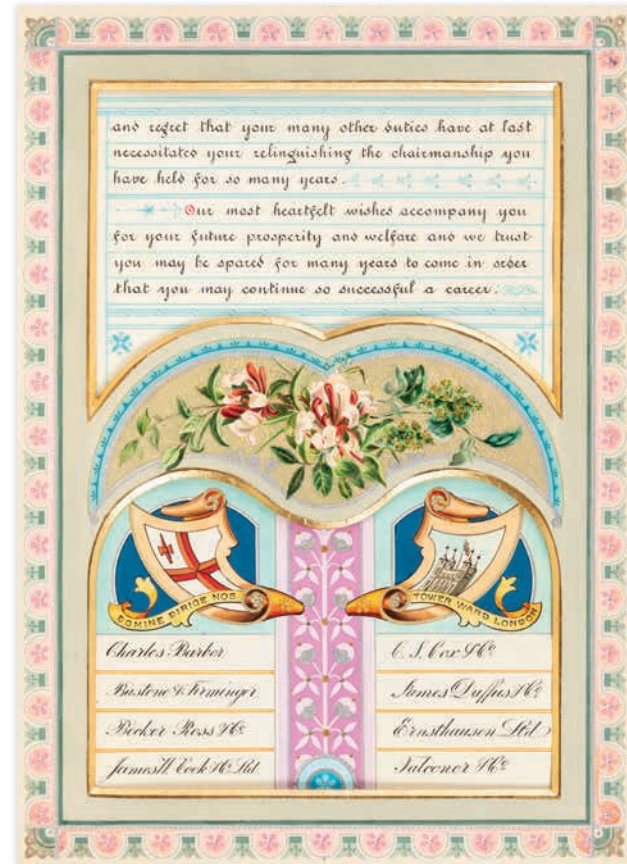 and regret that your many other duties have at last
necessitated your relinquishing the chairmanship you
have held for so many years.
Our most heartfelt wishes accompany you
for your future prosperity and welfare and we trust
you may be spared for many years to come in order
that you may continue so successful a career.
DOMINE DIRIGE NOS
TOWER WARD LONDON
Charles Barber
& Firminger
Ross & Co
James W. Cook & Co. Ltd.
C. S. Cox & Co
James Duffus & Co
Ernsthausen Ltd
Falconer & Co